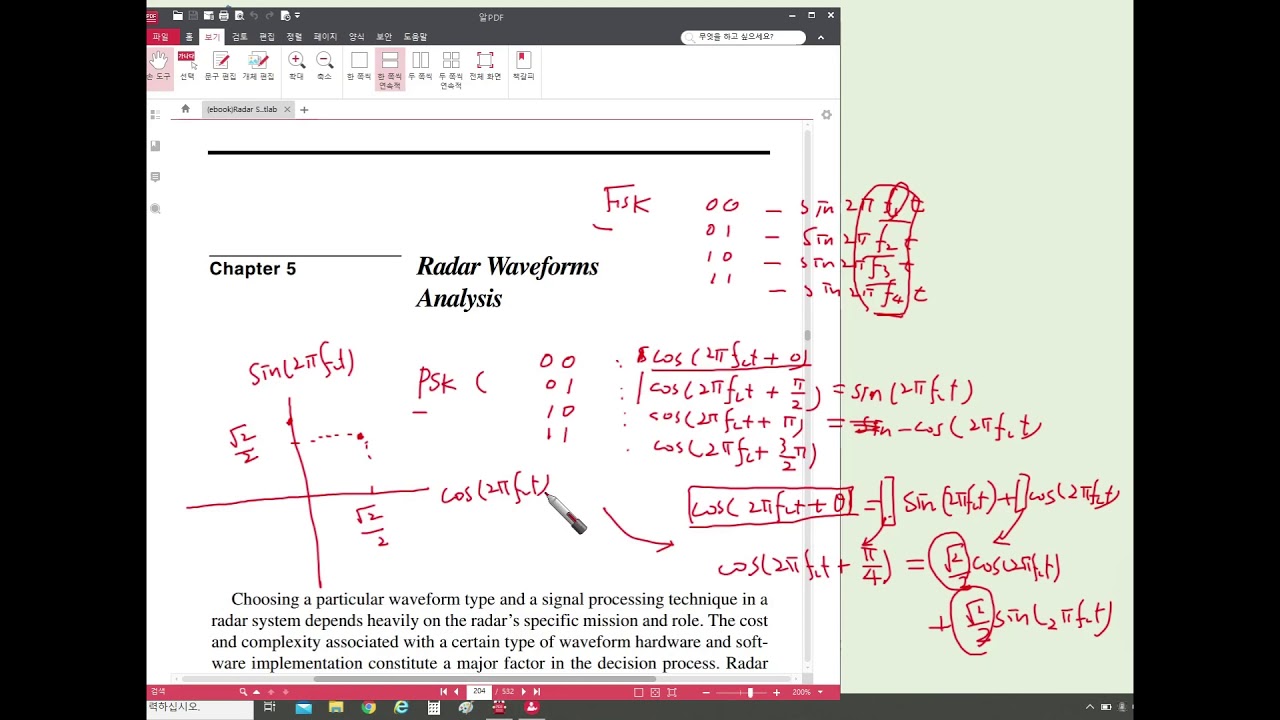 알PDF
파일 홈 보기 검토 편집 정렬 페이지 양식 보안 도움말
무엇을 하고 싶으세요?
손 도구 선택 문구 편집 개체 편집 확대 축소 한 쪽씩 한 쪽씩 연속적 두 쪽씩 두 쪽씩 연속적 전체 화면 책갈피
(ebook)Radar S..tlab
FSK 00 - sin 2π f1 t
01 - sin 2π f2 t
10 - sin 2π f3 t
11 - sin 2π f4 t
Chapter 5
Radar Waveforms
Analysis
PSK ( 00 : cos(2πfct + 0)
01 : cos(2πfct + π/2) = sin(2πfct)
10 : cos(2πfct + π) = -cos(2πfct)
11 : cos(2πfc + 3/2π)
sin(2πfct)
√2/2
√2/2
cos(2πfct)
cos(2πfct + θ) = [ ] sin(2πfct) + [ ] cos(2πfct)
cos(2πfct + π/4) = √2/2 cos(2πfct)
+ √2/2 sin(2πfct)
Choosing a particular waveform type and a signal processing technique in a
radar system depends heavily on the radar's specific mission and role. The cost
and complexity associated with a certain type of waveform hardware and soft-
ware implementation constitute a major factor in the decision process. Radar
검색
204 / 532
200%
력하십시오.